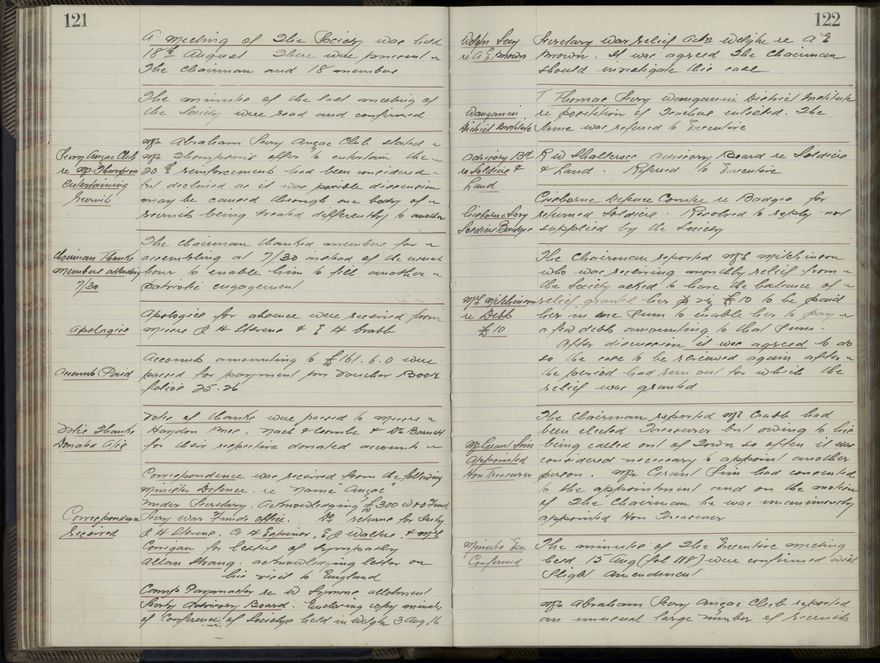 121
A meeting of The Society was held
18th August There were present
The Chairman and 18 members
The minutes of the last meeting of
the Society were read and confirmed
Mr Abraham Secry Anzac Club stated
Secry Anzac Club
re Mr Thompson
Entertaining
Recruits
Mr Thompson's offer to entertain the
20th reinforcements had been considered
but declined as it was possible dissension
may be caused through one body of
recruits being treated differently to another
Chairman Thanks
members attending
7/30
The Chairman thanked members for
assembling at 7/30 instead of the usual
hour to enable him to fill another
patriotic engagement
Apologies
Apologies for absence were received from
Accounts Paid
Accounts amounting to £161.6.0 were
passed for payment per Voucher Book
folios 25.26
Vote Thanks
Donated A/cs
Votes of thanks were passed to Messrs
for their respective donated accounts
Correspondence
Received
Correspondence was received from the following
Minister Defence re name "Anzac"
Under Secretary. Acknowledging £300
Secry War Funds Office.
Corrigan for letter of sympathy
Allan Strang. acknowledging letter on
his visit to England
Camp Paymaster re allotment
Secty Advisory Board. Enclosing copy minutes
of Conference of Societys held in Welgtn 3 Aug. 16
122
re A E Brown
Secretary War relief Assn Welgtn re A E
Brown. It was agreed The Chairman
should investigate this case
Wanganui
District Institute
Thomas Secry Wanganui District Institute
re position of Teachers enlisted. The
same was referred to Executive
Advisory Bd
re Soldiers &
Land
Advisory Board re Soldiers
& Land. Referred to Executive
Gisborne Secry
Soldiers Badges
Gisborne Defence Comtee re Badges for
returned Soldiers. Resolved to reply not
supplied by the Society
Mrs Mitchinson
re Debts
£10
The Chairman reported Mrs Mitchinson
who was receiving monthly relief from
the Society asked to have the balance of
relief granted her £10 to be paid
her in one sum to enable her to pay
a few debts amounting to that sum.
After discussion it was agreed to do
so the case to be reviewed again after
the period had run out for which the
relief was granted
Mr Grant Sim
Appointed
Hon Treasurer
The Chairman reported Mr Crabb had
been elected Treasurer but owing to his
being called out of Town so often it was
considered necessary to appoint another
person. Mr Grant Sim had consented
to the appointment and on the motion
of The Chairman he was unanimously
appointed Hon Treasurer
Minutes Exe
Confirmed
The minutes of The Executive meeting
held 15 Aug (fol 118) were confirmed with
slight amendment
Mr Abraham Secry Anzac Club reported
an unusual large number of recruits